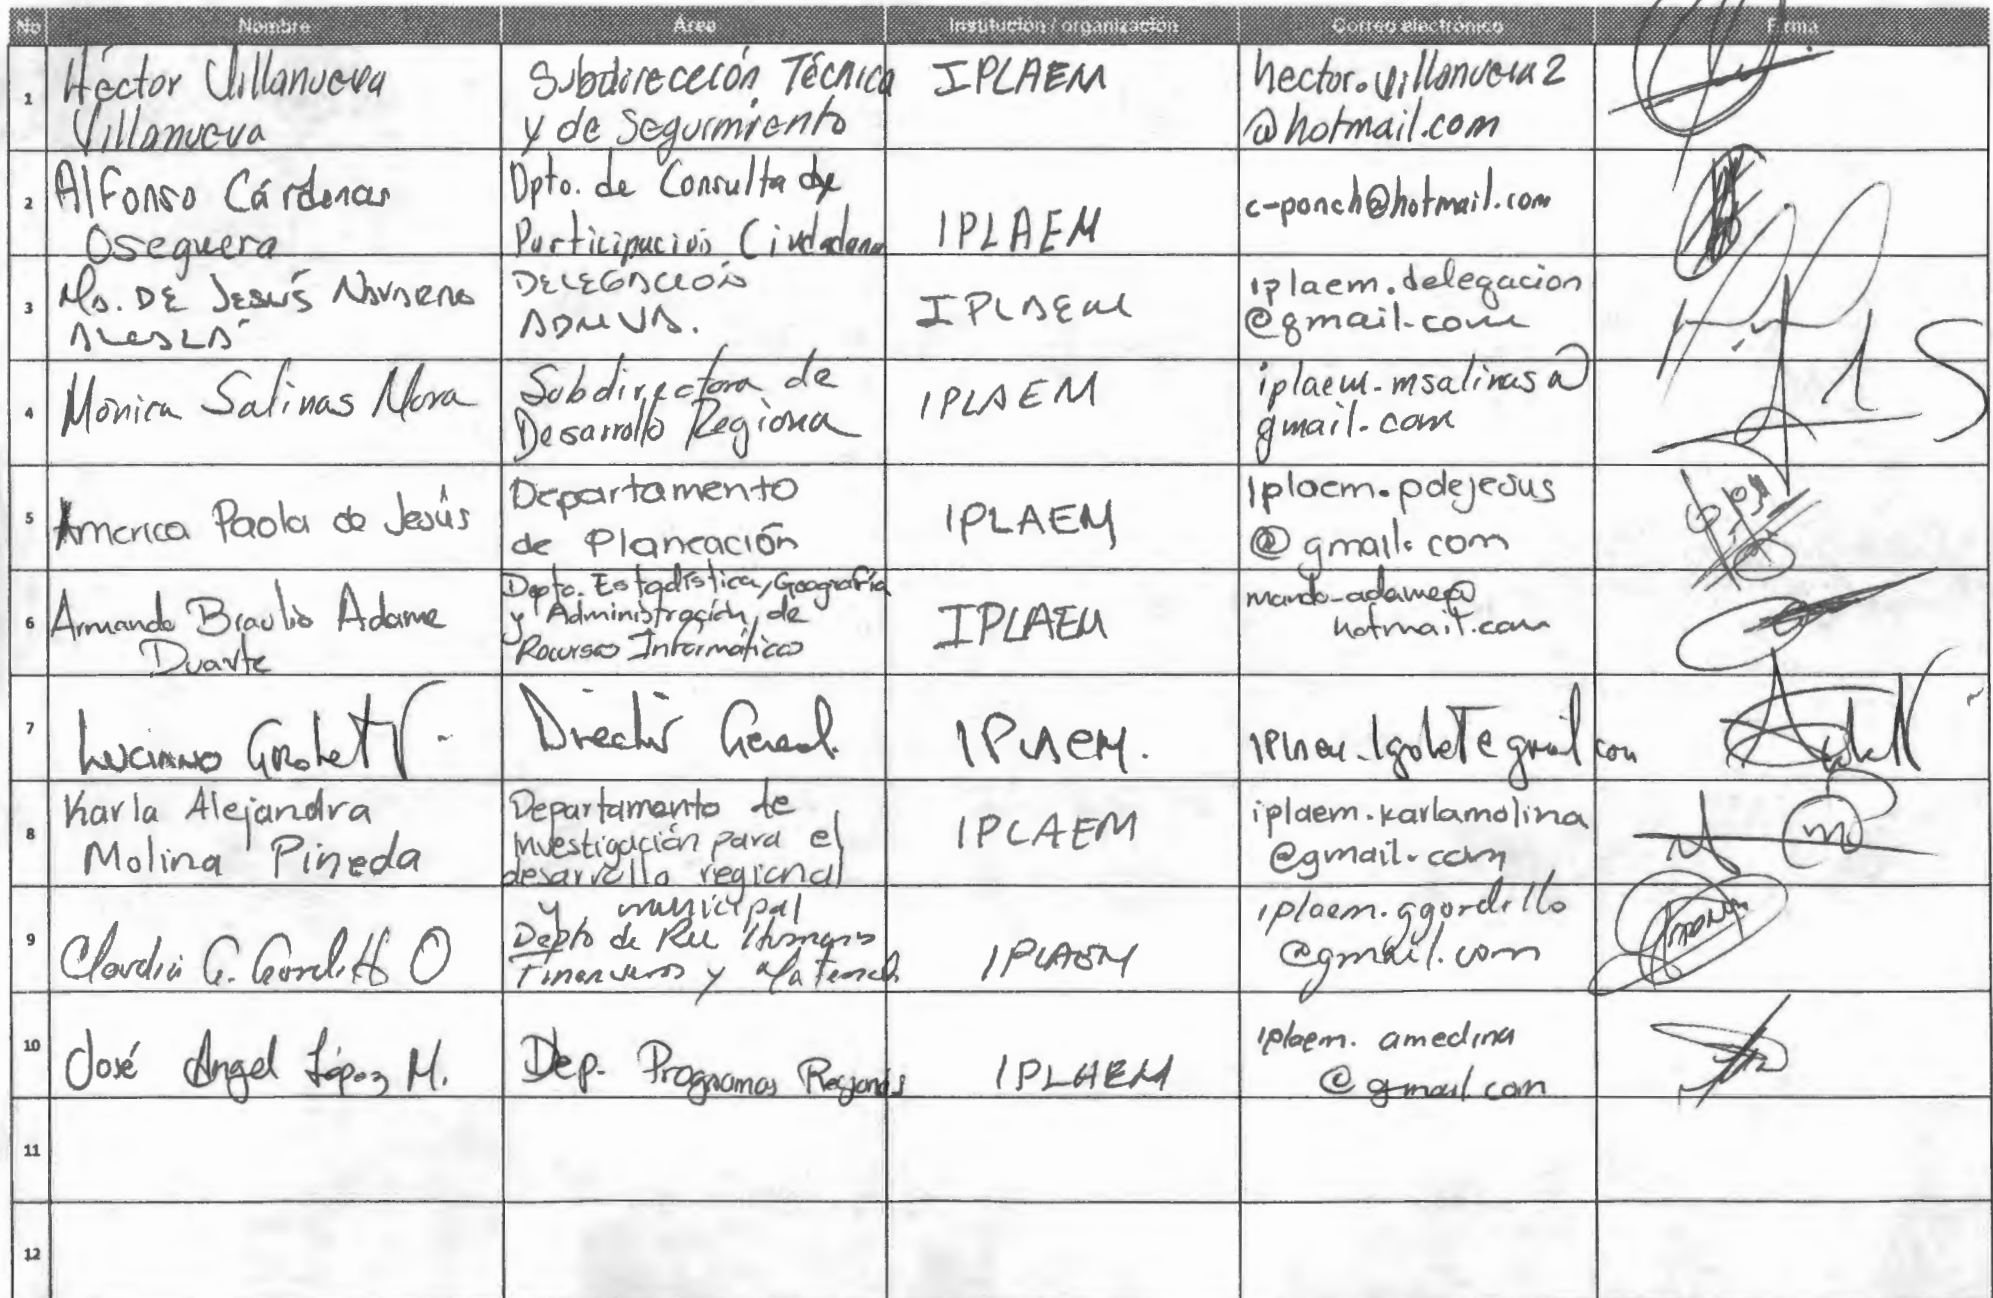 No Nombre Área Institución / organización Correo electrónico Firma
1 Héctor Villanueva Villanueva
Subdirección Técnica y de Seguimiento
IPLAEM
hector.villanueva2
@hotmail.com
2 Alfonso Cárdenas
Oseguera
Dpto. de Consulta de
Participación Ciudadana
IPLAEM
c-ponch@hotmail.com
3 Ma. DE JESÚS NAVARRO
ALCALÁ
DELEGACIÓN
ADMVA.
IPLAEM
iplaem.delegacion
@gmail.com
4 Mónica Salinas Mora
Subdirectora de
Desarrollo Regional
IPLAEM
iplaem.msalinas@
gmail.com
5 America Paola de Jesús
Departamento
de Planeación
IPLAEM
iplaem.pdejesus
@gmail.com
6 Armando Braulio Adame
Duarte
Depto. Estadística, Geografía
y Administración de
Recursos Informáticos
IPLAEM
mando-adame@
hotmail.com
7 LUCIANO Grobet V
Director General.
IPLAEM.
iplaem.lgrobet@gmail.com
8 Karla Alejandra
Molina Pineda
Departamento de
Investigación para el
desarrollo regional
y municipal
IPLAEM
iplaem.karlamolina
@gmail.com
9 Claudia G. Gordillo O
Depto de Rec Humanos
Financieros y Materiales
IPLAEM
iplaem.ggordillo
@gmail.com
10 José Angel López M.
Dep. Programas Regionales
IPLAEM
iplaem.amedina
@gmail.com
11
12